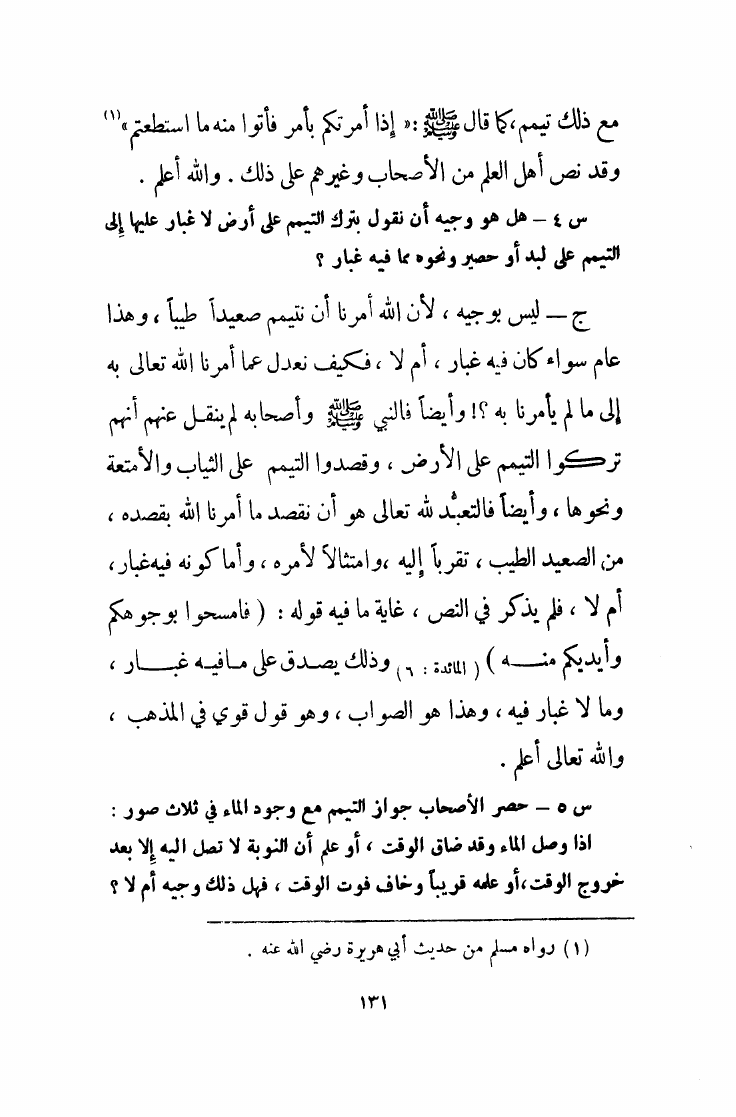 مع ذلك تيمم، كما قال ﷺ : « إذا أمرتكم بأمر فأتوا منه ما استطعتم »(١)
وقد نص أهل العلم من الأصحاب وغيرهم على ذلك . والله أعلم .
س ٤ – هل هو وجيه أن نقول بترك التيمم على أرض لا غبار عليها إلى
التيمم على لبد أو حصير ونحوه مما فيه غبار ؟
ج – ليس بوجيه ، لأن الله أمرنا أن نتيمم صعيداً طيباً ، وهذا
عام سواء كان فيه غبار ، أم لا ، فكيف نعدل عما أمرنا الله تعالى به
إلى ما لم يأمرنا به ؟! وأيضاً فالنبي ﷺ وأصحابه لم ينقل عنهم أنهم
تركوا التيمم على الأرض ، وقصدوا التيمم على الثياب والأمتعة
ونحوها ، وأيضاً فالتعبُّد لله تعالى هو أن نقصد ما أمرنا الله بقصده ،
من الصعيد الطيب ، تقرباً إليه ، وامتثالاً لأمره ، وأما كونه فيه غبار ،
أم لا ، فلم يذكر في النص ، غاية ما فيه قوله : ( فامسحوا بوجوهكم
وأيديكم منه ) ( المائدة : ٦ ) وذلك يصدق على ما فيه غبار ،
وما لا غبار فيه ، وهذا هو الصواب ، وهو قول قوي في المذهب ،
والله تعالى أعلم .
س ٥ – حصر الأصحاب جواز التيمم مع وجود الماء في ثلاث صور :
اذا وصل الماء وقد ضاق الوقت ، أو علم أن النوبة لا تصل اليه إلا بعد
خروج الوقت، أو علمه قريباً وخاف فوت الوقت ، فهل ذلك وجيه أم لا ؟
(١) رواه مسلم من حديث أبي هريرة رضي الله عنه .
١٣١